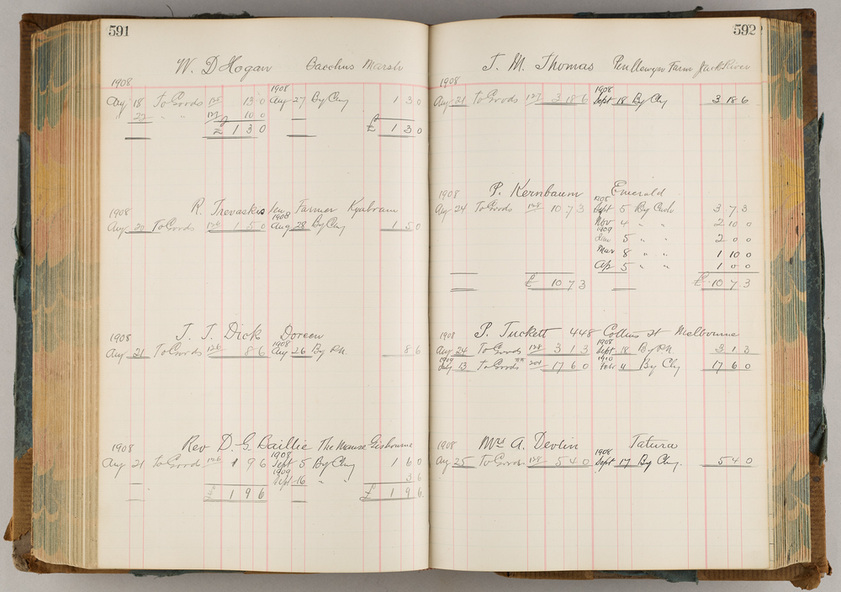 591
W. D Hogan Bacchus Marsh
1908 1908
Aug 18 To Goods 13 0 Aug 27 By Chq 1 3 0
22 " " 10 0
£ 1 3 0 £ 1 3 0
1908 R. Trevaskis Sen Farmer Kyabram
1908
Aug 20 To Goods 1 5 0 Aug 28 By Chq 1 5 0
1908 J. J. Dick Doreen
1908
Aug 21 To Goods 8 6 Aug 26 By P.N. 8 6
1908 Rev D. G. Baillie The Manse Gisbourne
1908
Aug 21 To Goods 1 9 6 Sept 5 By Chq 1 6 0
1909
Sept 16 " 3 6
1 9 6 £ 1 9 6
592
J. M. Thomas Penllewyn Farm Jack River
1908 1908
Aug 21 To Goods 127 3 18 6 Sept 18 By Chq 3 18 6
1908 P. Kernbaum Emerald
1908
Aug 24 To Goods 128 10 7 3 Sept 5 By Cash 3 7 3
Nov 4 " " 2 10 0
1909
Jan 5 " " 2 0 0
Mar 8 " " 1 10 0
Ap 5 " " 1 0 0
£ 10 7 3 £ 10 7 3
1908 P. Tuckett 448 Collins St Melbourne
1908
Aug 24 To Goods 128 3 1 3 Sept 18 By P.N. 3 1 3
1910 1910
July 13 To Goods 17 6 0 4 By Chq 17 6 0
1908 Mrs A. Devlin Tatura
1908
Aug 25 To Goods 128 5 4 0 Sept 17 By Chq. 5 4 0